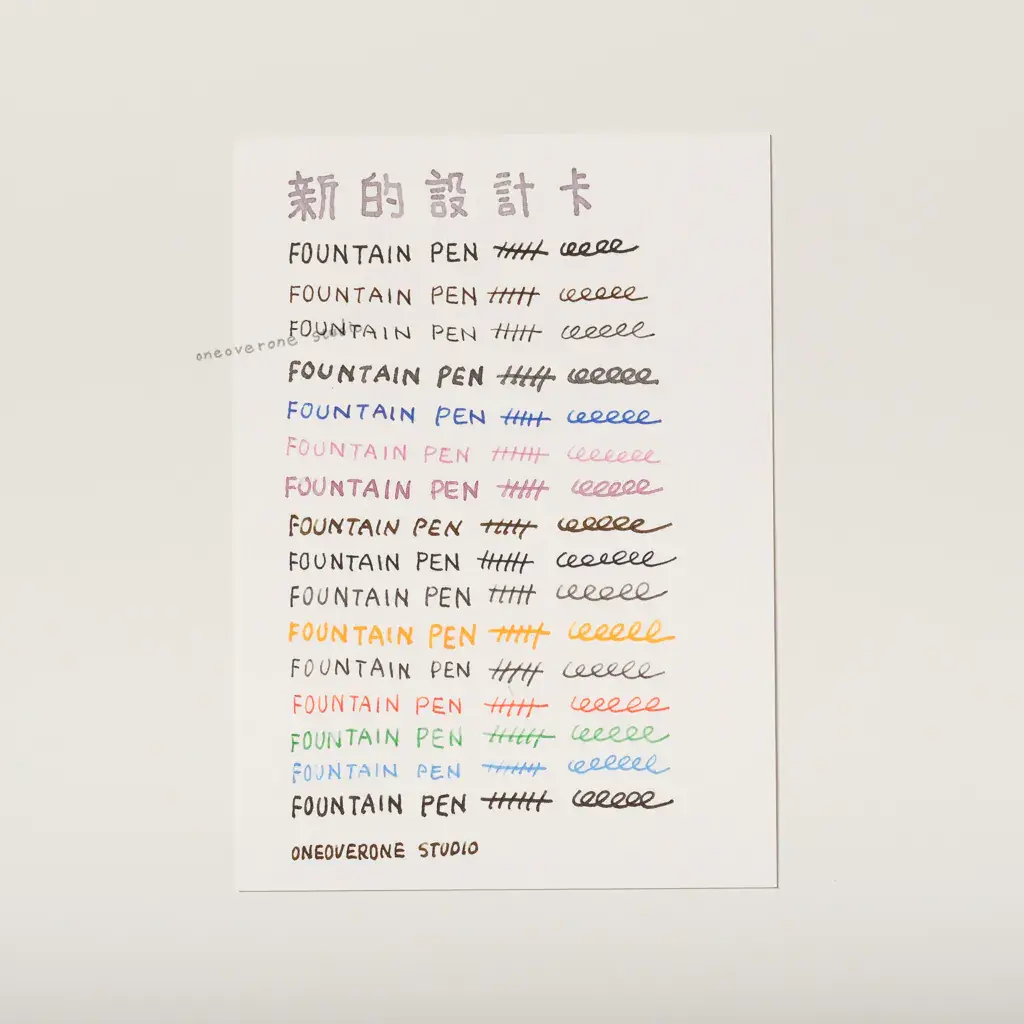 新的設計卡
FOUNTAIN PEN
FOUNTAIN PEN
FOUNTAIN PEN
oneoverone studio
FOUNTAIN PEN
FOUNTAIN PEN
FOUNTAIN PEN
FOUNTAIN PEN
FOUNTAIN PEN
FOUNTAIN PEN
FOUNTAIN PEN
FOUNTAIN PEN
FOUNTAIN PEN
FOUNTAIN PEN
FOUNTAIN PEN
FOUNTAIN PEN
FOUNTAIN PEN
ONEOVERONE STUDIO